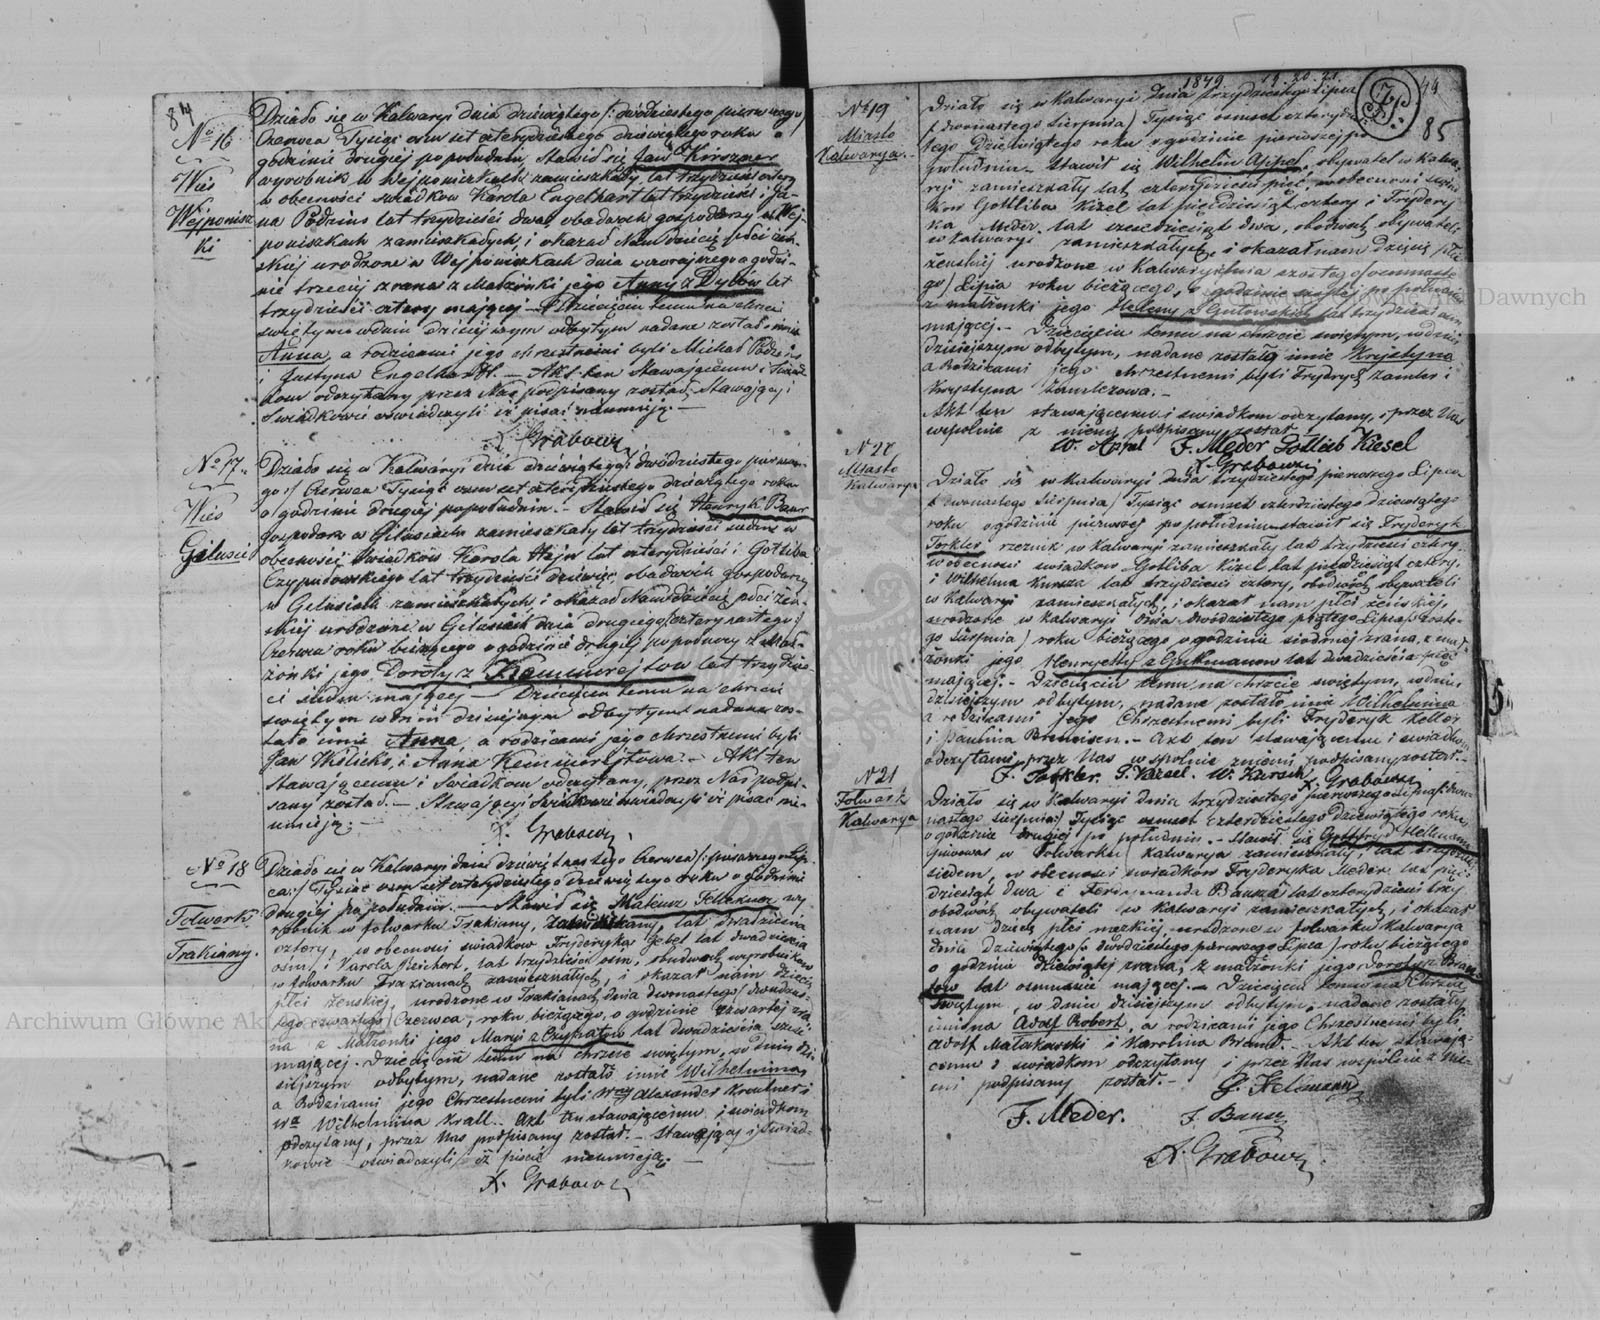 84
No 16
Wieś
Wejponisz
ki
Działo się w Kalwaryi dnia dziewiątego /: dwódziestego pierwszego /
Czerwca Tysiąc osmset czterdziestego dziewiątego roku o
godzinie drugiej po południu, Stawił się Jan Kirszner
wyrobnik w Wejponiszkach zamieszkały lat trzydzieści cztery
w obecności świadków Karola Engelhart lat trzydzieści i Ja-
na Podzius lat trzydzieści dwa, obadwóch gospodarzy w Wej-
poniszkach zamieszkałych, i okazał Nam dziécię płci żeń-
skiéj urodzone w Wejponiszkach dnia wczorajszego o godzi-
nie trzeciej z rana z Małżonki jego Anny z Dylów lat
trzydzieści cztery mającej — Dziecięciu temu na chrzcie
świętym w dniu dzisiejszym odbytym nadane zostało imie
Anna, a rodzicami jego chrzestnemi byli Michał Podzius
i Justyna Engelhardt. — Akt ten Stawającemu i Świad-
kom odczytany przez Nas podpisany został, Stawający i
Świadkowie oświadczyli iż pisać nieumieją. —
Grabowski
No 17
Wieś
Gielusie
Działo się w Kalwaryi dnia dziewiątego /: dwódziestego pierwsze-
go :/ Czerwca Tysiąc osmset czterdziestego dziewiątego roku
o godzinie drugiej popołudniu. — Stawił się Henryk Baur
gospodarz w Gielusiach zamieszkały lat trzydzieści siedm w
obecności Świadków Karola Hejn lat czterydzieści i Gotliba
Czyputowskiego lat trzydzieści dziewięć, obadwóch gospodarzy
w Gelusiach zamieszkałych i okazał Nam dziecię płci żeń-
skiéj urodzone w Gielusiach dnia drugiego /: czternastego :/
Czerwca roku bieżącego o godzinie drugiéj po północy z Mał-
żonki jego Doroty z Kemmerejtow lat trzydzie-
ści siedm mającej — Dziecięciu temu na chrzcie
świętym w dniu dzisiejszym odbytym nadane zos-
tało imie Anna, a rodzicami jego chrzestnemi byli
Jan Skölicko, i Anna Kemmerejtowa. — Akt ten
stawającemu i Świadkom odczytany, przez Nas podpi-
sany został. — Stawający i Świadkowie oświadczyli iż pisać nie-
umieją. —
Grabowski
No 18
Folwark
Trakiany.
Działo się w Kalwaryi dnia dziewiętnastego Czerwca /: pierwszego Lip-
ca :/ Tysiąc osm set czterdziestego dziewiątego roku o godzinie
drugiej po południu. — Stawił się Mateusz Fellehuer wy-
robnik w folwarku Trakiany, zamieszkały, lat dwadzieścia
cztery, w obecności świadkow Fryderyka Gebel lat dwadzieścia
ośm, i Karola Reichert, lat trzydzieści osm, obudwóch wyrobników
w folwarku Trakianach zamieszkałych, i okazał nam dziecię
płci żenskiej, urodzone w Trakianach dnia dwunastego / dwudzies-
tego czwartego / Czerwca, roku bieżącego, o godzinie czwartej zra
na z Małżonki jego Maryi z Czyputow lat dwadzieścia sześć
mającej. Dziecięciu temu na chrzcie świętym, w dniu dzi-
siejszym odbytym, nadane zostało imie Wilhelmina,
a Rodzicami jego Chrzestnemi byli Alexander Krautner i
Wilhelmina Krall. — Akt ten stawającemu i świadkom
odczytany, przez Nas podpisany został. — Stawający i Świad-
kowie oświadczyli iż pisać nieumieją. —
Grabowski
1849 19. 20. 21.
7
44
85
No 19
Miasto
Kalwarya.
Działo się w Kalwaryi Dnia trzydziestego Lipca
/ dwunastego Sierpnia / Tysiąc osmset czterydzies-
tego Dziewiątego roku o godzinie pierwszej po
południu. Stawił się Wilhelm Appel, obywatel w Kalwa-
ryi zamieszkały lat czterydzieści pięć, w obecności świad-
kow Gottliba Kizel lat pięćdziesiąt cztery i Frydery-
ka Meder lat sześćdziesiąt dwa, obodwóch obywateli
w Kalwaryi zamieszkałych, i okazał nam dziecię płci
żenskiej urodzone w Kalwaryi dnia szostego / osmnaste-
go / Lipca roku bieżącego, o godzinie szóstej po południu
z małżonki jego Heleny z Gutowskich lat trzydzieści osm
mającej. — Dziecięciu temu na chrzcie świętym, w dniu
dzisiejszym odbytym, nadane zostało imie Krystyna
a Rodzicami jego chrzestnemi byli Fryderyk Zamler i
Krystyna Zamlerowa. —
Akt ten stawającemu i swiadkom odczytany, i przez Nas
wspolnie z niemi podpisany został.
W. Appel F. Meder Gotlieb Kiesel
Grabowski
No 20
Miasto
Kalwarya
Działo się w Kalwaryi dnia trzydziestego pierwszego Lipca
/ dwunastego Sierpnia / Tysiąc osmset czterdziestego dziewiątego
roku o godzinie pierwszej po południu stawił się Fryderyk
Torkler rzeznik w Kalwaryi zamieszkały lat trzydzieści cztery.
w obecności swiadkow Gotliba Kizel lat pięćdziesiąt cztery,
i Wilhelma Kursza lat trzydzieści cztery, obodwóch obywateli
w Kalwaryi zamieszkałych, i okazał nam płci żeńskiej,
urodzone w Kalwaryi dnia dwódziestego piątego Lipca / szoste-
go Sierpnia / roku bieżącego o godzinie siodmej zrana, z mał-
żonki jego Henryetty z Gutmanow lat dwadzieścia pięć
mającej. — Dziecięciu temu na chrzcie swiętym, w dniu
dzisiejszym odbytym, nadane zostało imie Wilhelmina
a rodzicami jego Chrzestnemi byli Fryderyk Keller
i Paulina Brenejsen. — Akt ten stawającemu i swiadkom
odczytany przez Nas wspolnie z niemi podpisany został. —
F. Torkler. G. Kiesel. W. Kursch Grabowski
No 21
Folwark
Kalwarya
Działo się w Kalwaryi dnia trzydziestego pierwszego Lipca / dwu-
nastego Sierpnia / Tysiąc osmset czterdziestego dziewiątego roku,
o godzinie drugiej po południu. Stawił się Gottfryd Hellmann
w Folwarku Kalwarya zamieszkały, lat trzydzieści
siedem, w obecności swiadków Fryderyka Meder lat pięć-
dziesiąt dwa i Ferdynanda Bausza lat czterydzieści trzy
obodwóch obywateli w Kalwaryi zamieszkałych, i okazał
nam dziecię płci męzkiej urodzone w folwarku Kalwarya
dnia dziewiątego / dwódziestego pierwszego Lipca / roku bieżącego
o godzinie dziewiątej zrana, z małżonki jego Doroty z Bran-
tow lat osmnaście mającej. — Dziecięciu temu na Chrzcie
Swiętym, w dniu dzisiejszym odbytym, nadane zostały
imiona Adolf Robert, a rodzicami jego Chrzestnemi byli
Adolf Matakowski i Karolina Brand. — Akt ten stawają-
cemu i swiadkom odczytany i przez Nas wspolnie z Nie-
mi podpisany został. —
G. Helmann
F. Meder. F. Bausz
A. Grabowski
5
Archiwum Główne Akt Dawnych
Archiwum Główne Akt Dawnych